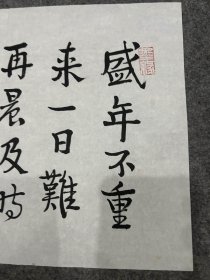 盛年不重
来一日難
再晨及时